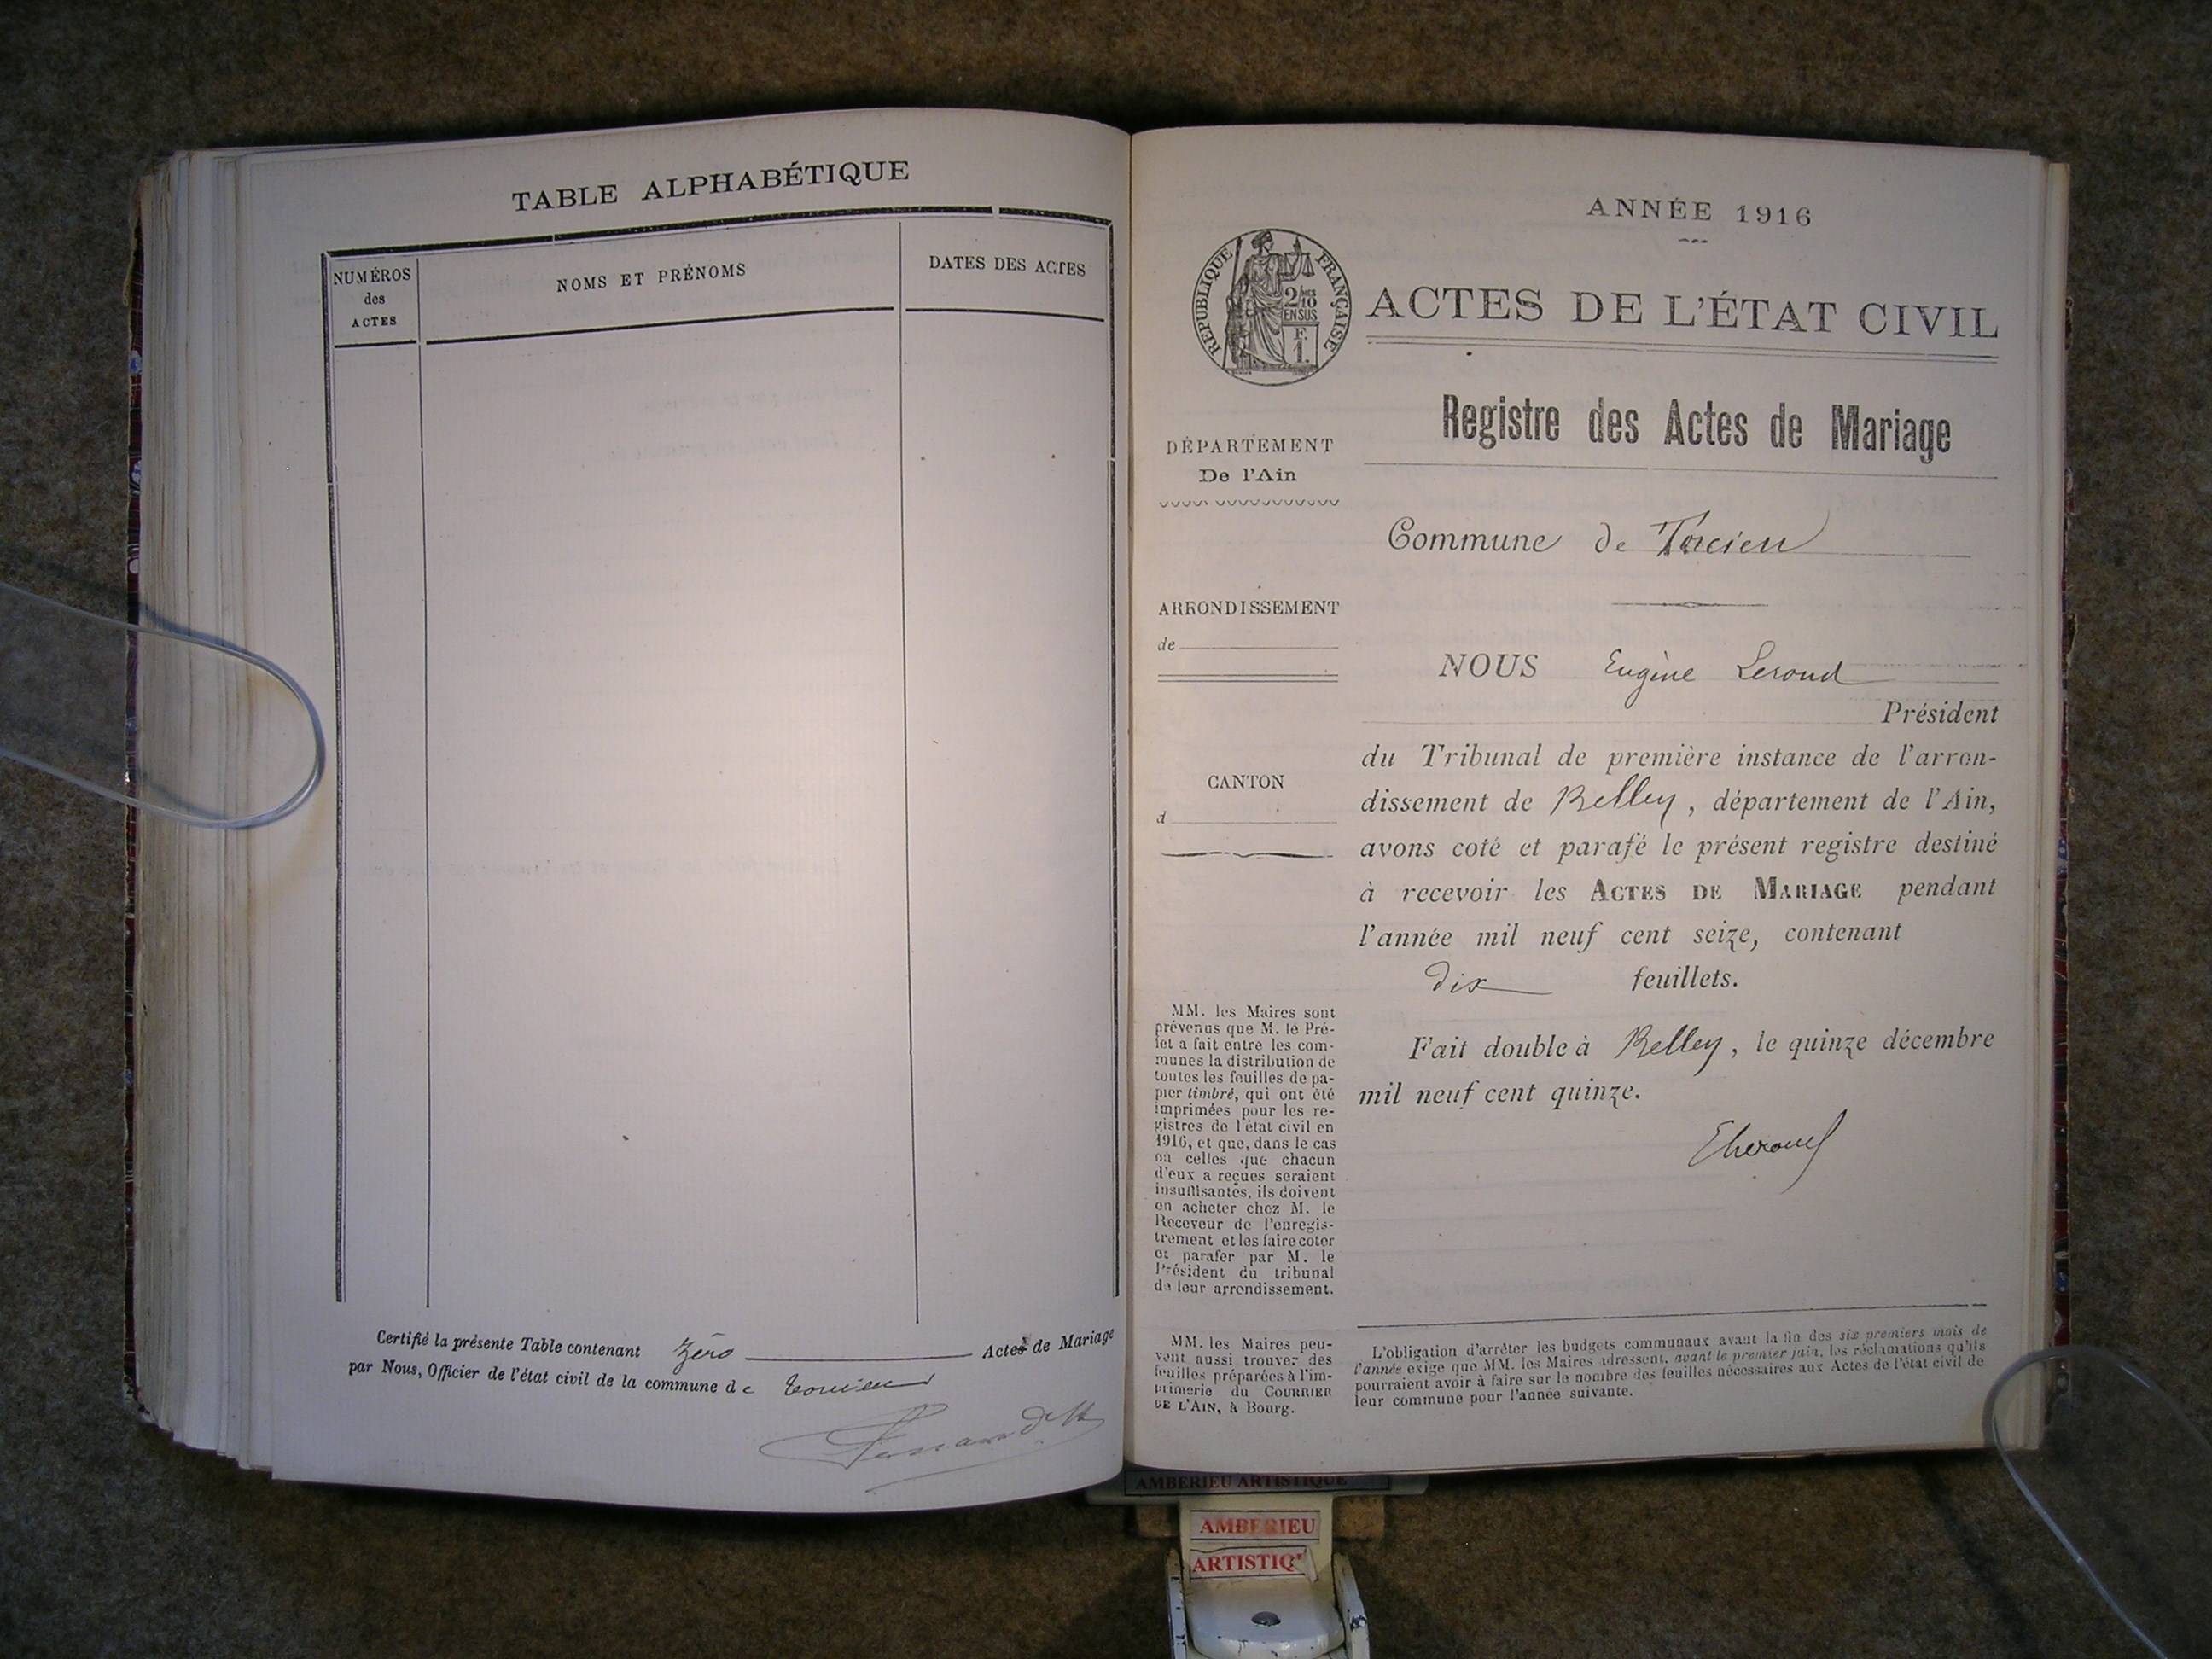 TABLE ALPHABÉTIQUE
NUMÉROS
des
ACTES
NOMS ET PRÉNOMS
DATES DES ACTES
Certifié la présente Table contenant zéro Acte de Mariage
par Nous, Officier de l'état civil de la commune de Torcieu
ANNÉE 1916
RÉPUBLIQUE FRANÇAISE
2/10
EN SUS
F.
1.
ACTES DE L'ÉTAT CIVIL
Registre des Actes de Mariage
DÉPARTEMENT
De l'Ain
Commune de Torcieu
ARRONDISSEMENT
de
NOUS Eugène Leroud
Président
du Tribunal de première instance de l'arron-
dissement de Belley, département de l'Ain,
avons coté et parafé le présent registre destiné
à recevoir les ACTES DE MARIAGE pendant
l'année mil neuf cent seize, contenant
dix feuillets.
Fait double à Belley, le quinze décembre
mil neuf cent quinze.
CANTON
d
MM. les Maires sont
prévenus que M. le Pré-
fet a fait entre les com-
munes la distribution de
toutes les feuilles de pa-
pier timbré, qui ont été
imprimées pour les re-
gistres de l'état civil en
1916, et que, dans le cas
où celles que chacun
d'eux a reçues seraient
insuffisantes, ils doivent
en acheter chez M. le
Receveur de l'enregis-
trement et les faire coter
et parafer par M. le
Président du tribunal
de leur arrondissement.
MM. les Maires peu-
vent aussi trouver des
feuilles préparées à l'im-
primerie du COURRIER
DE L'AIN, à Bourg.
L'obligation d'arrêter les budgets communaux avant la fin des six premiers mois de
l'année exige que MM. les Maires adressent, avant le premier juin, les réclamations qu'ils
pourraient avoir à faire sur le nombre des feuilles nécessaires aux Actes de l'état civil de
leur commune pour l'année suivante.
AMBERIEU ARTISTIQUE
AMBERIEU
ARTISTIQ